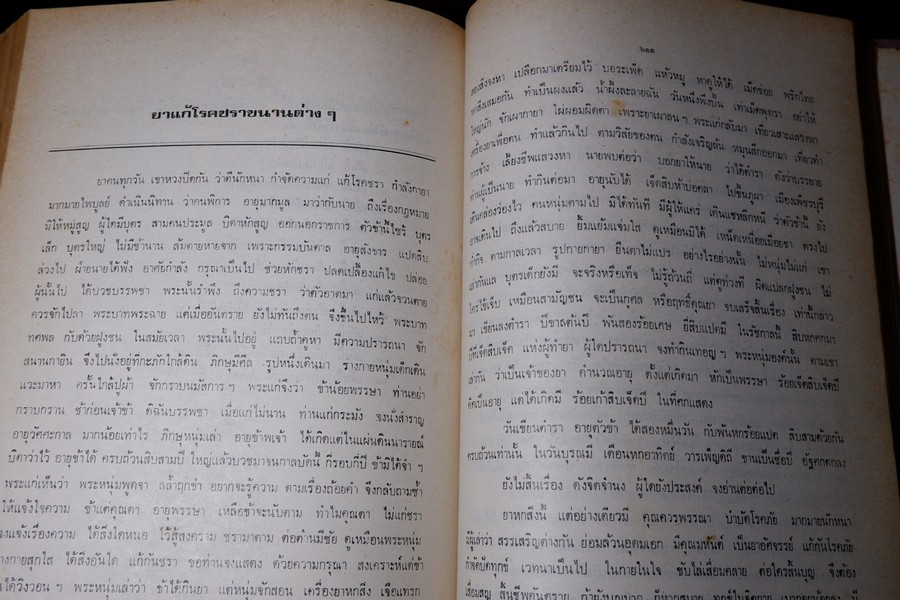 ยาแก้โรคชราขนานต่าง ๆ
ยาคนทุกวัน เขาหวงปิดกัน ว่าดีนักหนา กำจัดความแก่ แก้โรคชรา กำลังกายา
มากมายไพบูลย์ ดำเนินนิทาน ว่าคนพิการ อายุมากมูล มาว่ากับนาย ถึงเรื่องกฎหมาย
มิให้หมู่สูญ ผู้ใดมีบุตร สามคนประมูล บิดาหักสูญ ออกนอกราชการ ตัวข้านี้ไซร้ บุตร
เล็ก บุตรใหญ่ ไม่มีข้านาน ล้มตายหายจาก เพราะกรรมบันดาล อายุสังขาร แปดสิบ
ล่วงไป ฝ่ายนายได้ฟัง อาศัยกำลัง กรุณาเป็นไป ช่วยหักชรา ปลดเปลื้องแก้ไข ปล่อย
ผู้นั้นไป ได้บวชบรรพชา พระนั้นรำพึง ถึงความชรา ว่าตัวอาตมา แก่แล้วจวนตาย
ควรจักไปลา พระบาทพระฉาย แต่เมื่ออันตราย ยังไม่ทันถึงตน จึงขึ้นไปไหว้ พระบาท
ทศพล กับด้วยฝูงชน ในสมัยเวลา พระนั้นไปอยู่ แถบถ้ำคูหา มีความปรารถนา จัก
สนานกายิน จึงไปนั่งอยู่ที่กะภักใกล้ดิน ภิกษุมีศีล รูปหนึ่งเดินมา ร่างกายหนุ่มเด็กเดิน
แวะมาหา ครั้นใกล้ปูผ้า จักกราบนมัสการ ๆ พระแก่จึงว่า ข้าน้อยพรรษา ท่านอย่า
กราบกราน ข้าก่อนเจ้าข้า ดิฉันบรรพชา เมื่อแก่ไม่นาน ท่านแก่กระมัง จงนั่งสำราญ
อายุวัศคะกาล มากน้อยเท่าไร ภิกษุหนุ่มเล่า อายุข้าพเจ้า ได้เกิดแต่ในแผ่นดินนารายณ์
บิดาว่าไว้ อายุข้าได้ ครบถ้วนสิบสามปี ใหญ่แล้วบวชมาจนกาลบัดนี้ ก็รอบกี่ปี ข้ามิได้จำ ๆ
พระแก่เห็นว่า พระหนุ่มพูดจา ลล้าฤกข้า อยากจะรู้ความ ตามเรื่องถ้อยคำ จึงกลับถามซ้ำ
ให้แจ้งใจความ ข้าแต่คุณตา อายุพรรษา เหลือข้าจะนับตาม ทำไมคุณตา ไม่แก่ชรา
แจ้งเรื่องความ ได้สิ่งใดหนอ ไว้สู้สงคราม ชรามาตาม ต่อต้านมีชัย ดูเหมือนพระหนุ่ม
กายสุกใส ได้สิ่งอันใด แก้กันชรา ขอท่านจงแสดง ด้วยความกรุณา สงเคราะห์แด่ข้า
ได้วิงวอน ๆ พระหนุ่มเล่าว่า ข้าได้กินยา แต่หนุ่มจักสอน เครื่องยาหกสิ่ง เจือแทรก
๖๑๑
สิ่งจงหา เปลือกมาเตรียมไว้ บอระเพ็ด แห้วหมู หาดูให้ได้ เม็ดข่อย พริกไทย
หกสิ่งเสมอกัน ทำเป็นผงแล้ว น้ำผึ้งละลายฉัน วันหนึ่งพึงปั้น เท่าเม็ดพุทรา อย่าให้
ใหญ่นัก จักเผากายา ไผ่ผอมผิดตา เพราะยาเผาตน ๆ พระแก่กลับมา เที่ยวเสาะแสวงหา
เครื่องยาเพื่อตน ทำแล้วกินไป ตามวิสัยของตน กำลังเจริญล้น หมุนสึกออกมา เที่ยวทำ
การจ้าง เลี้ยงชีพแสวงหา นายพบต่อว่า บอกยาให้นาย ว่าได้ตำรา ดังว่าบรรยาย
ท่านผู้เป็นนาย ทำกินต่อมา อายุนับได้ เจ็ดสิบห้าบ่อคลา ไปขึ้นภูผา เมืองเพชรบุรี
เดินคล่องว่องไว คนหนุ่มตามไป มิได้ทันที มีผู้ให้แคร่ เดินแซหลีกหนี ว่าตัวข้านี้ ยัง
อาจเดินไป ถึงแล้วสบาย ยิ้มแย้มแจ่มใส ดูเหมือนมิได้ เหน็ดเหนื่อยเมื่อยเขา ตรงไป
ทำกิจ ตามกาลเวลา รูปกายกายา ยืนตาไม่แปร อย่างไรอย่างนั้น ไม่หนุ่มไม่แก่ เขา
เล่ากันแล บุตรเด็กยังมี จะจริงหรือเท็จ ไม่รู้ถ้วนถี่ แต่ดูท่วงที ผิดแปลกฝูงชน ไม่
ใคร่ใช้เจ็บ เหมือนสามัญชน จะเป็นกุศล หรือฤทธิ์คุณยา จบเสร็จสิ้นเรื่อง เท่าแก่กล่าว
มา เขียนลงตำรา ปีขาลต้นปี พันสองร้อยเศษ ยี่สิบแปดมี ในรัชกาลนี้ สิบหกตกมา
ปีที่เจ็ดสิบเจ็ด แห่งผู้ทำยา ผู้ใดปรารถนา จงทำกินเทอญ ๆ พระหนุ่มองค์นั้น ตามเขา
เล่ากัน ว่าเป็นเจ้าของยา คำนวณอายุ ตั้งแต่เกิดมา หักเป็นพรรษา ร้อยเจ็ดสิบเจ็ดปี
คิดเป็นอายุ แต่ได้เกิดมี ร้อยเก้าสิบเจ็ดปี ในที่ศกแสดง
วันเขียนตำรา อายุตัวข้า ได้สองหมื่นวัน กับพันหกร้อยแปด สิบสามด้วยกัน
ครบถ้วนเท่านั้น ในวันบูรณมี เดือนหกอาทิตย์ วารเพ็ญดิถี ขานเป็นชื่อปี อัฐศกตกลง
ยังไม่สิ้นเรื่อง ดังจิตจำนง ผู้ใดยังประสงค์ จงอ่านต่อต่อไป
ยาหกสิ่งนี้ แต่อย่างเดียวมี คุณควรพรรณา บำบัดโรคภัย มากมายนักหนา
มีผู้เล่าว่า สรรเสริญต่างกัน ย่อมล้วนอุดมเอก มีคุณมหันต์ เป็นยาอัศจรรย์ แก้กันโรคภัย
กำจัดปัดทุกข์ เวทนาเป็นไป ในกายในใจ ขับไล่เสื่อมคลาย ต่อใครสิ้นบุญ จึงต้อง
เสื่อมสูญ สิ้นชีพอันตราย ถ้ายังบุญมาก ก็หากสบาย